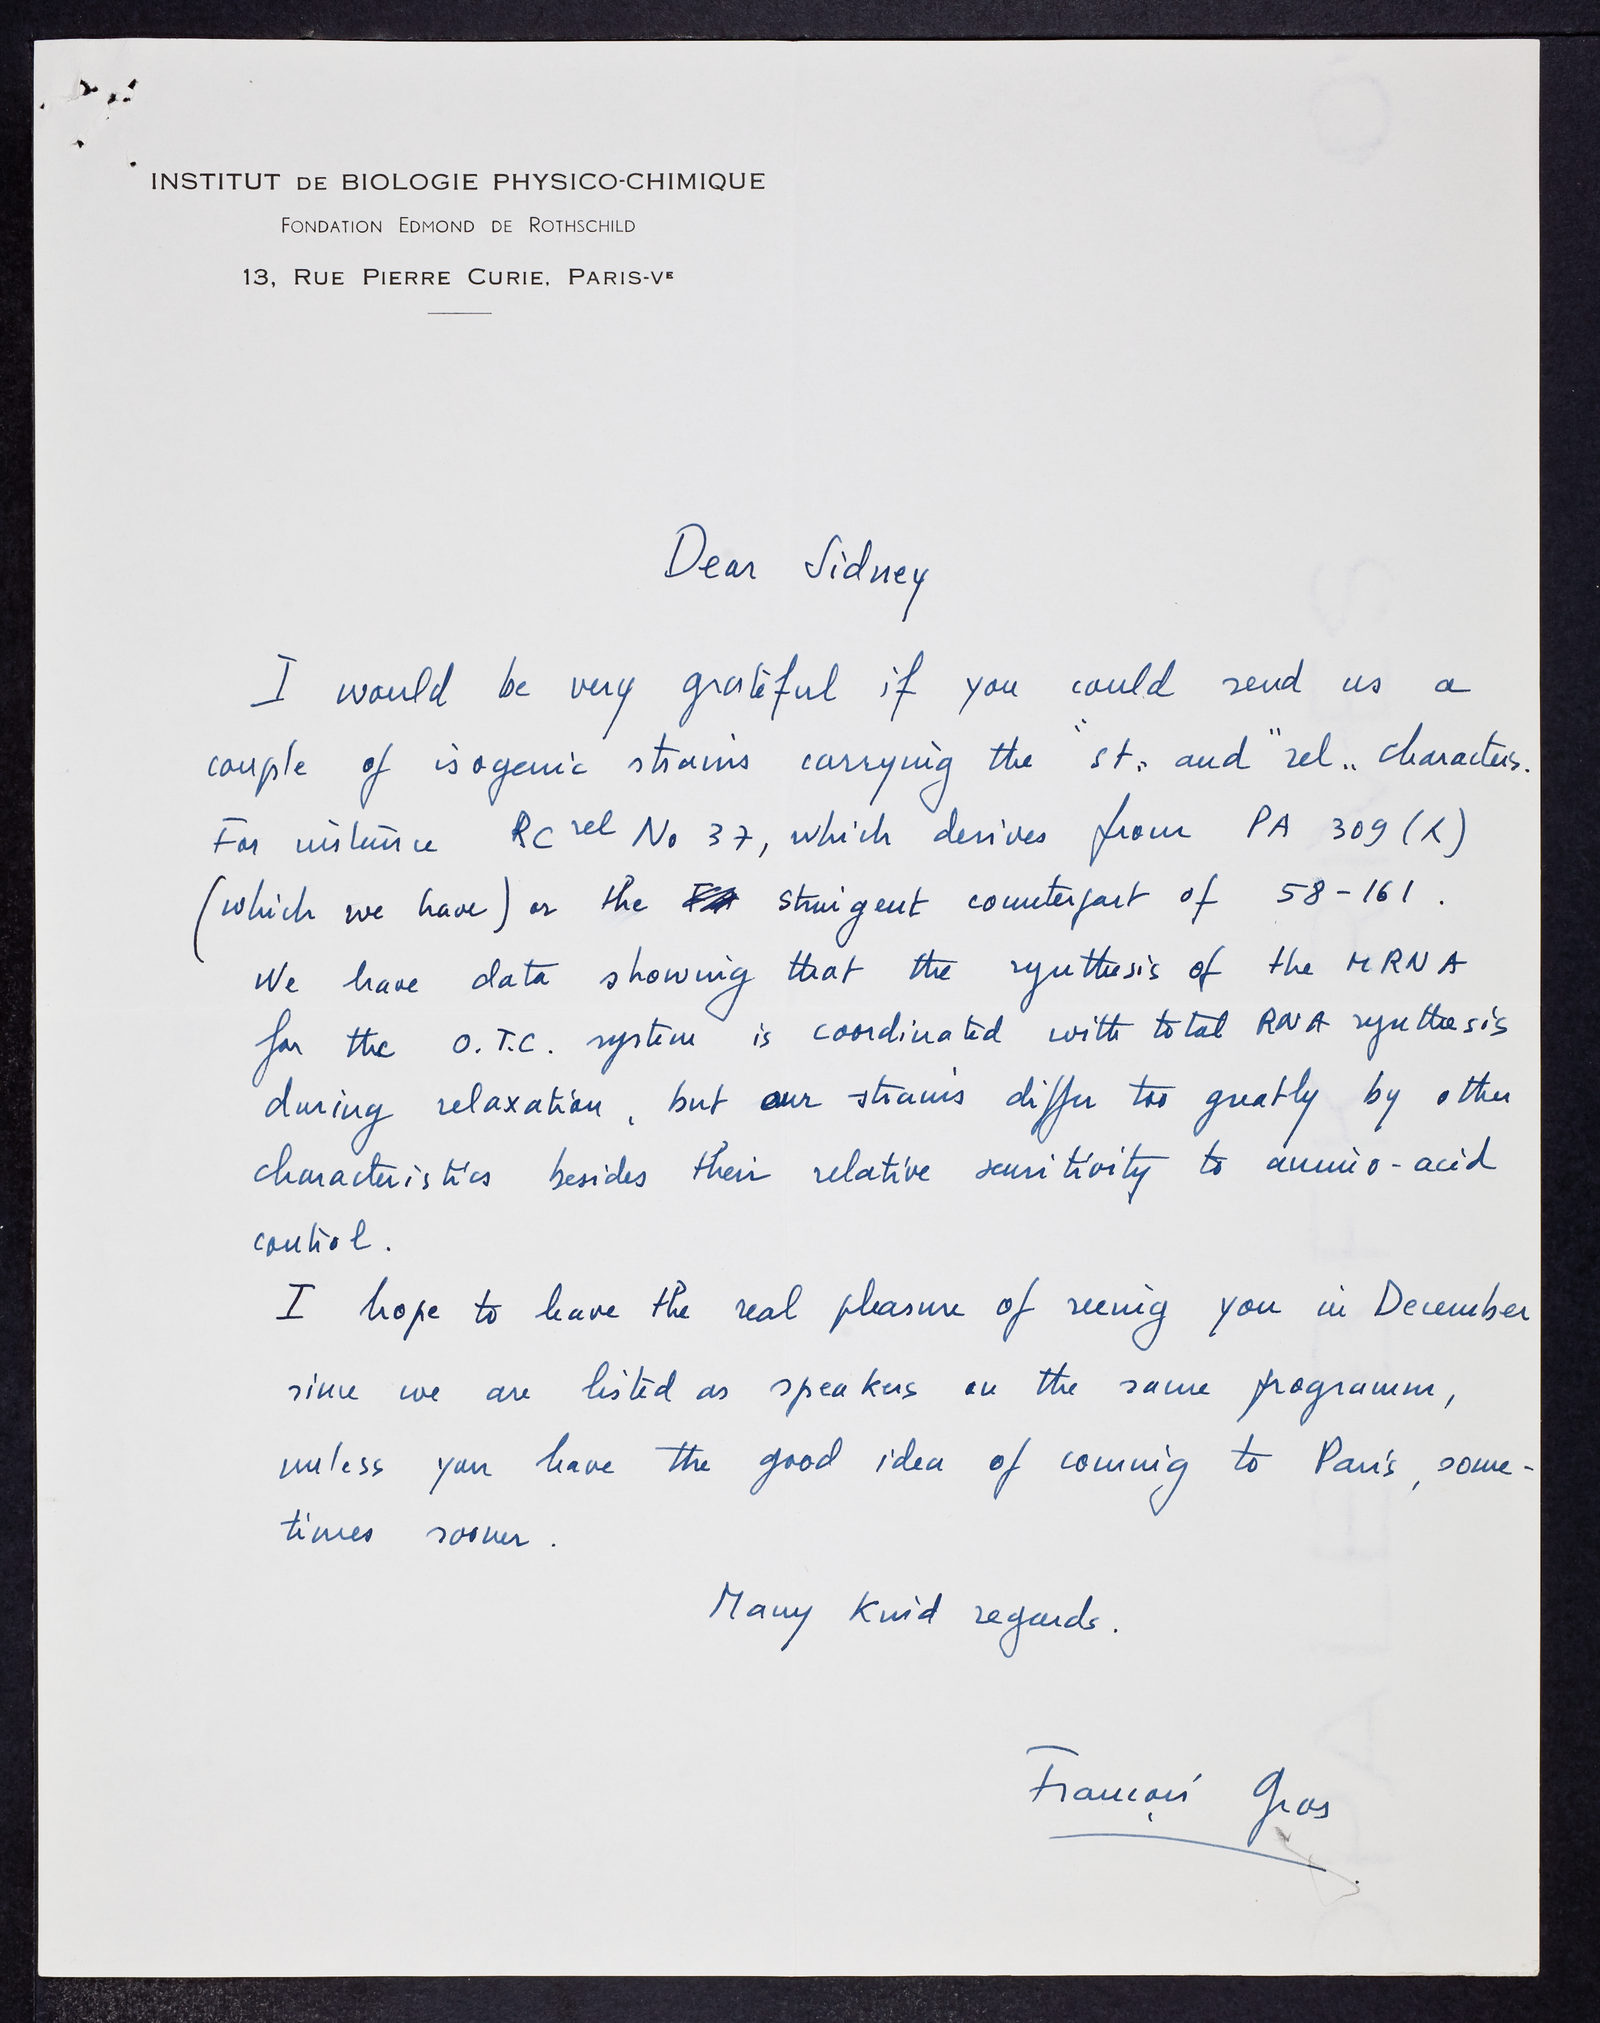 INSTITUT DE BIOLOGIE PHYSICO-CHIMIQUE
FONDATION EDMOND DE ROTHSCHILD
13, RUE PIERRE CURIE, PARIS-VE
Dear Sidney
I would be very grateful if you could send us a
couple of isogenic strains carrying the "st" and "rel" characters.
For instance RC rel No 37, which derives from PA 309 (λ)
(which we have) or the stringent counterpart of 58-161.
We have data showing that the synthesis of the MRNA
for the O.T.C. system is coordinated with total RNA synthesis
during relaxation, but our strains differ too greatly by other
characteristics besides their relative sensitivity to amino-acid
control.
I hope to have the real pleasure of seeing you in December
since we are listed as speakers on the same programm,
unless you have the good idea of coming to Paris, some-
times sooner.
Many kind regards.
François Gros